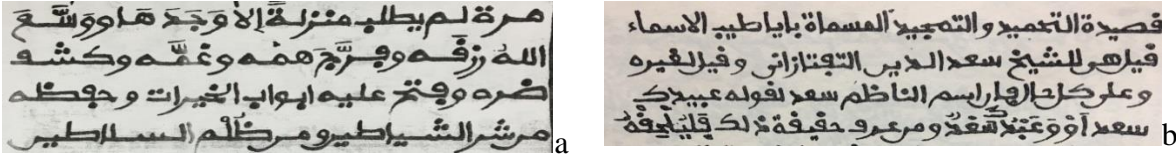 مرة لم يطلب منزلة إلا وَجَدَهَا ووَسَّعَ
الله رزقه وفرَّجَ همه وغمَّه وكشف
ضره وفتح عليه ابواب الخيرات وحفظه
من شر الشياطين ومن ظلم السلاطين
a
قصيدة التحميد والتمجيد المسماة بايا طيب الاسماء
قيل هي للشيخ سعد الدين التفتازاني وقيل لغيره
وعلى كل حال فإن اسم الناظم سعد لقوله عبيدك
سعد أوْ وَعَبْدُكَ سَعْدٌ ومن عرف حقيقة ذلك فليلحقه
b